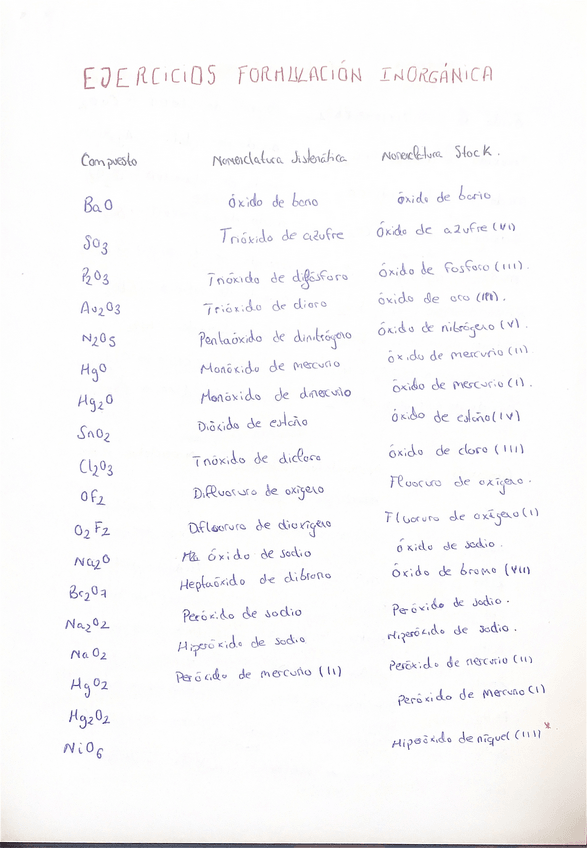 EJERCICIOS FORMULACIÓN INORGÁNICA
Compuesto Nomenclatura Sistemática Nomenclatura Stock.
BaO óxido de bario óxido de bario
SO3 Trióxido de azufre óxido de azufre (VI)
P2O3 Trióxido de difósforo óxido de fosforo (III).
Au2O3 Trióxido de dioro óxido de oro (III).
N2O5 Pentaóxido de dinitrógeno óxido de nitrógeno (V).
HgO Monóxido de mercurio óxido de mercurio (II)
Hg2O Monóxido de dimercurio óxido de mercurio (I).
SnO2 Dióxido de estaño óxido de estaño (IV)
Cl2O3 Trióxido de dicloro óxido de cloro (III)
OF2 Difluoruro de oxígeno Fluoruro de oxígeno.
O2F2 Difluoruro de dioxígeno Fluoruro de oxígeno (I)
Na2O óxido de sodio óxido de sodio.
Br2O7 Heptaóxido de dibromo óxido de bromo (VII)
Na2O2 Peróxido de sodio Peróxido de sodio.
NaO2 Hiperóxido de sodio Hiperóxido de sodio.
HgO2 Peróxido de mercurio (II) Peróxido de mercurio (II)
Hg2O2 Peróxido de mercurio (I)
NiO6 Hiperóxido de niquel (III) *